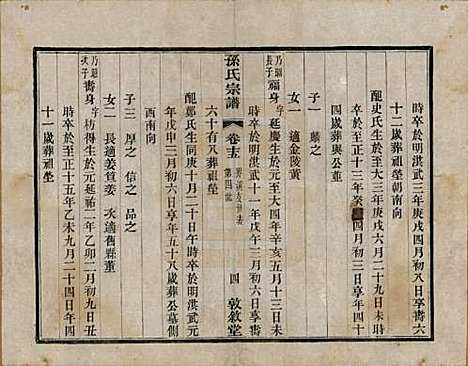 時卒於明洪武三年庚戌四月初八日享壽六
十二歲葬祖塋朝南向
配史氏生於至大三年庚戌六月二十九日未時
卒於至正十三年癸
四月初三日享年四十
四歲葬與公董
子一 驥之
女一 適金陵黃
乃疆長子
福身 字延慶生於元至大四年辛亥五月十三日未
時卒於明洪武十一年戊午三月初六日享壽
六十有八葬祖塋
孫氏宗譜 卷十五
第四誌
四 敦敘堂
配鄭氏生同庚十月二十日午時卒於明洪武元
年戊申三月初六日享年五十八歲葬公墓側
西南向
子三 厚之 信之 品之
女二 長適姜筧姜 次適舊縣董
乃疆次子
壽身 字枋得生於元延祐二年乙卯二月初九日丑
時卒於至正十五年乙未九月二十四日年四
十一歲葬祖塋